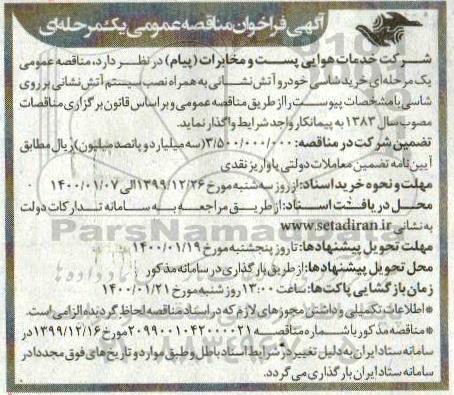 آگهی فراخوان مناقصه عمومی یک مرحله‌ای
شرکت خدمات هوایی پست و مخابرات (پیام) در نظر دارد، مناقصه عمومی
یک مرحله‌ای خرید شاسی خودرو آتش نشانی به همراه نصب سیستم آتش نشانی بر روی
شاسی با مشخصات پیوست را از طریق مناقصه عمومی و بر اساس قانون برگزاری مناقصات
مصوب سال ۱۳۸۳ به پیمانکار واجد شرایط واگذار نماید.
تضمین شرکت در مناقصه: ۳/۵۰۰/۰۰۰/۰۰۰ (سه میلیارد و پانصد میلیون) ریال مطابق
آیین نامه تضمین معاملات دولتی یا واریز نقدی
مهلت و نحوه خرید اسناد: از روز سه شنبه مورخ ۱۳۹۹/۱۲/۲۶ الی ۱۴۰۰/۰۱/۰۷
محل دریافت اسناد: از طریق مراجعه به سامانه تدارکات دولت
به نشانی www.setadiran.ir
مهلت تحویل پیشنهادها: تا روز پنجشنبه مورخ ۱۴۰۰/۰۱/۱۹
محل تحویل پیشنهادها: از طریق بارگذاری در سامانه مذکور
زمان بازگشایی پاکت‌ها: ساعت ۱۳:۰۰ روز شنبه مورخ ۱۴۰۰/۰۱/۲۱
* اطلاعات تکمیلی و داشتن مجوزهای لازم که در اسناد مناقصه لحاظ گردیده الزامی است.
* مناقصه مذکور با شماره مناقصه ۲۰۹۹۰۰۱۰۴۲۰۰۰۰۲۱ مورخ ۱۳۹۹/۱۲/۱۶ در
سامانه ستاد ایران به دلیل تغییر در شرایط اسناد باطل و طبق موارد و تاریخ های فوق مجددا در
سامانه ستاد ایران بارگذاری می گردد.